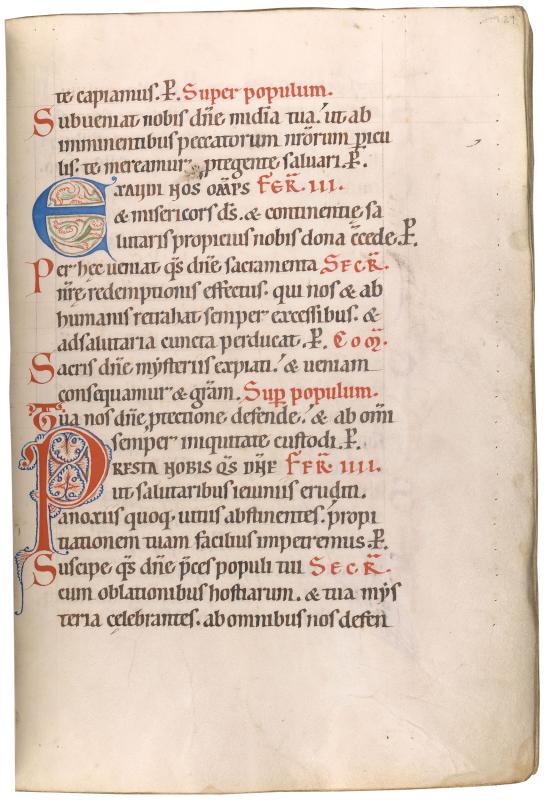 te capiamus. P. Super populum.
Subueniat nobis dñe midia tua. ut ab
imminentibus peccatorum nrorum picu
lis. te mereamur ptegente saluari. P.
EXAUDI NOS OMPS FER. III.
& misericors ds. & continentie sa
lutaris propicius nobis dona cc̄ede. P.
Per hec ueniat qs dñe sacramenta SECR.
nrē redemptionis effectus. qui nos & ab
humanis retrahat semper excessibus. &
ad salutaria cuncta perducat. P. Com.
Sacris dñe mysteriis expiati. & ueniam
consequamur & gram. Sup populum.
Tua nos dñe ptectione defende. & ab omi
semper iniquitate custodi. P.
PRESTA NOBIS QS DNE FER IIII.
ut salutaribus ieiuniis eruditi.
a noxiis quoq. uitiis abstinentes. propi
tiationem tuam facilius impetremus. P.
Suscipe qs dñe pces populi tui SECR.
cum oblationibus hostiarum. & tua mys
teria celebrantes. ab omnibus nos defen